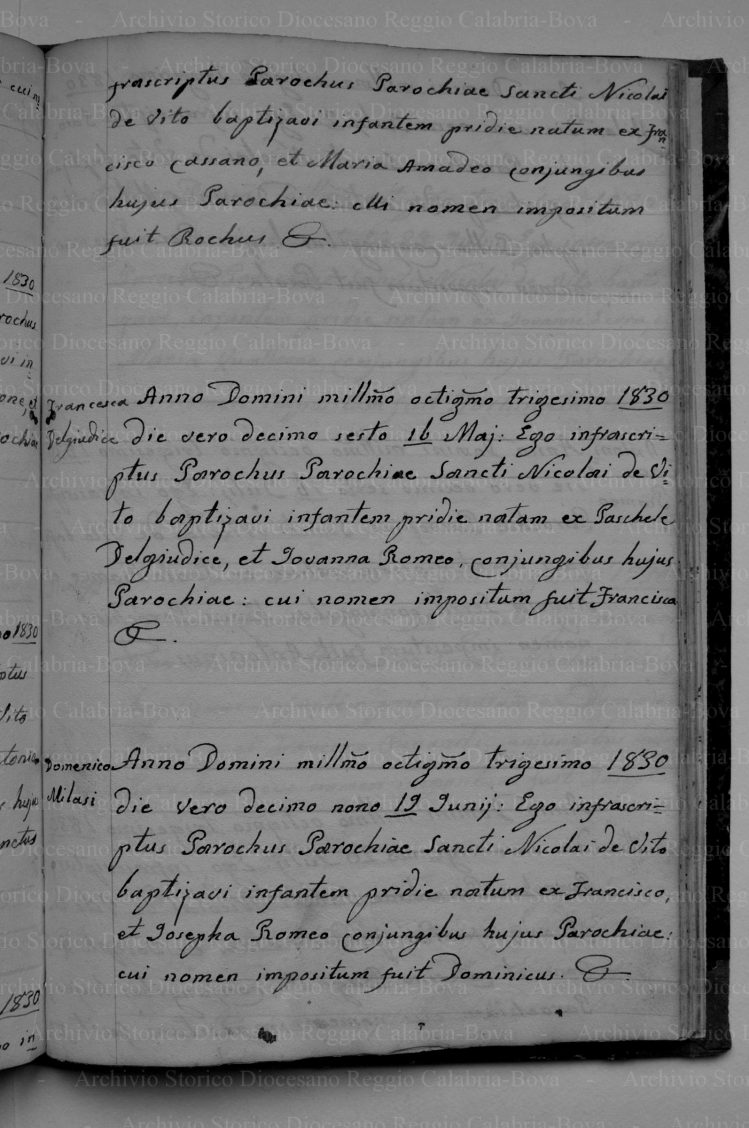 frascriptus Parochus Parochiae Sancti Nicolai
de Vito baptizavi infantem pridie natum ex Fran=
cisco Cassano, et Maria Amadeo conjungibus
hujus Parochiae: cui nomen impositum
fuit Rochus. &.
Francesca
Delgiudice
Anno Domini millm̃o octigm̃o trigesimo 1830
die vero decimo sesto 16 Maj: Ego infrascri=
ptus Parochus Parochiae Sancti Nicolai de Vi=
to baptizavi infantem pridie natam ex Paschele
Delgiudice, et Jovanna Romeo, conjungibus hujus
Parochiae: cui nomen impositum fuit Francisca
&.
Domenico
Milasi
Anno Domini millm̃o octigm̃o trigesimo 1830
die vero decimo nono 19 Junij: Ego infrascri=
ptus Parochus Parochiae Sancti Nicolai de Vito
baptizavi infantem pridie natum ex Francisco,
et Josepha Romeo conjungibus hujus Parochiae:
cui nomen impositum fuit Dominicus. &
1830
1830
1830
Archivio Storico Diocesano Reggio Calabria-Bova